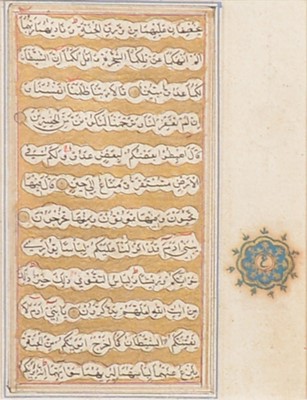 يَخْصِفَانِ عَلَيْهِمَا مِنْ وَرَقِ الْجَنَّةِ وَنَادَاهُمَا رَبُّهُمَا
أَلَمْ أَنْهَكُمَا عَنْ تِلْكُمَا الشَّجَرَةِ وَأَقُلْ لَكُمَا إِنَّ الشَّيْطَانَ
لَكُمَا عَدُوٌّ مُبِينٌ قَالَا رَبَّنَا ظَلَمْنَا أَنْفُسَنَا
وَإِنْ لَمْ تَغْفِرْ لَنَا وَتَرْحَمْنَا لَنَكُونَنَّ مِنَ الْخَاسِرِينَ
قَالَ اهْبِطُوا بَعْضُكُمْ لِبَعْضٍ عَدُوٌّ وَلَكُمْ فِي
الْأَرْضِ مُسْتَقَرٌّ وَمَتَاعٌ إِلَى حِينٍ قَالَ فِيهَا
تَحْيَوْنَ وَفِيهَا تَمُوتُونَ وَمِنْهَا تُخْرَجُونَ
يَا بَنِي آدَمَ قَدْ أَنْزَلْنَا عَلَيْكُمْ لِبَاسًا يُوَارِي
سَوْآتِكُمْ وَرِيشًا وَلِبَاسُ التَّقْوَى ذَلِكَ خَيْرٌ ذَلِكَ
مِنْ آيَاتِ اللَّهِ لَعَلَّهُمْ يَذَّكَّرُونَ يَا بَنِي آدَمَ لَا
يَفْتِنَنَّكُمُ الشَّيْطَانُ كَمَا أَخْرَجَ أَبَوَيْكُمْ مِنَ الْجَنَّةِ
يَنْزِعُ عَنْهُمَا لِبَاسَهُمَا لِيُرِيَهُمَا سَوْآتِهِمَا إِنَّهُ يَرَاكُمْ
ع